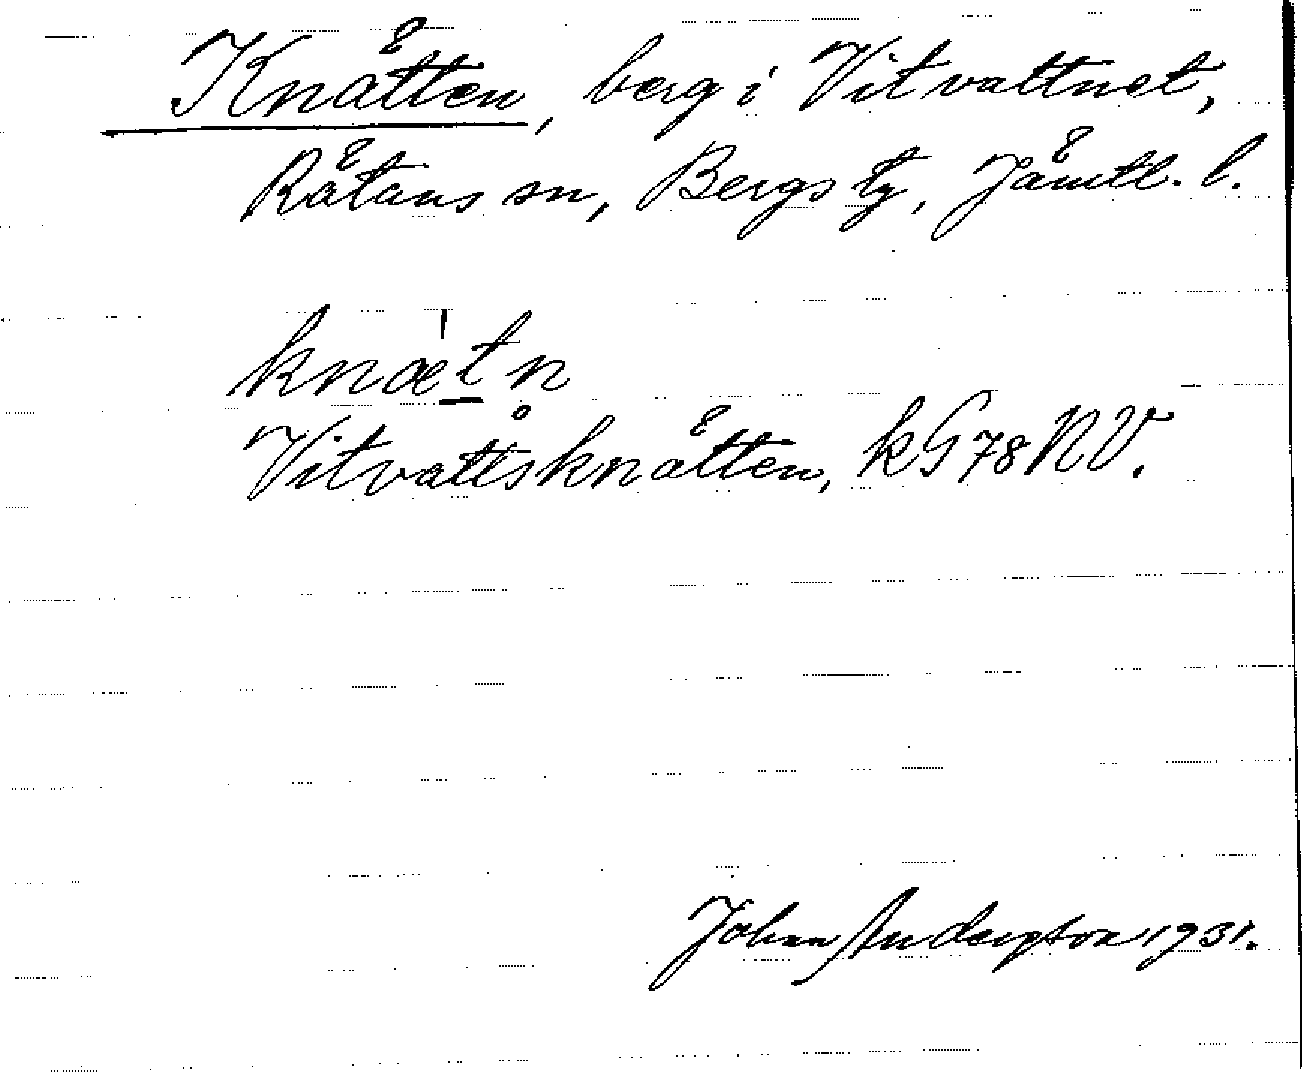 Knätten, berg i Vitvattnet,
Rätans sn, Bergs tg, Jämtl. l.
knæˈt̲n̥
Vitvattsknätten, kG78NV.
Johan Andersson 1931.